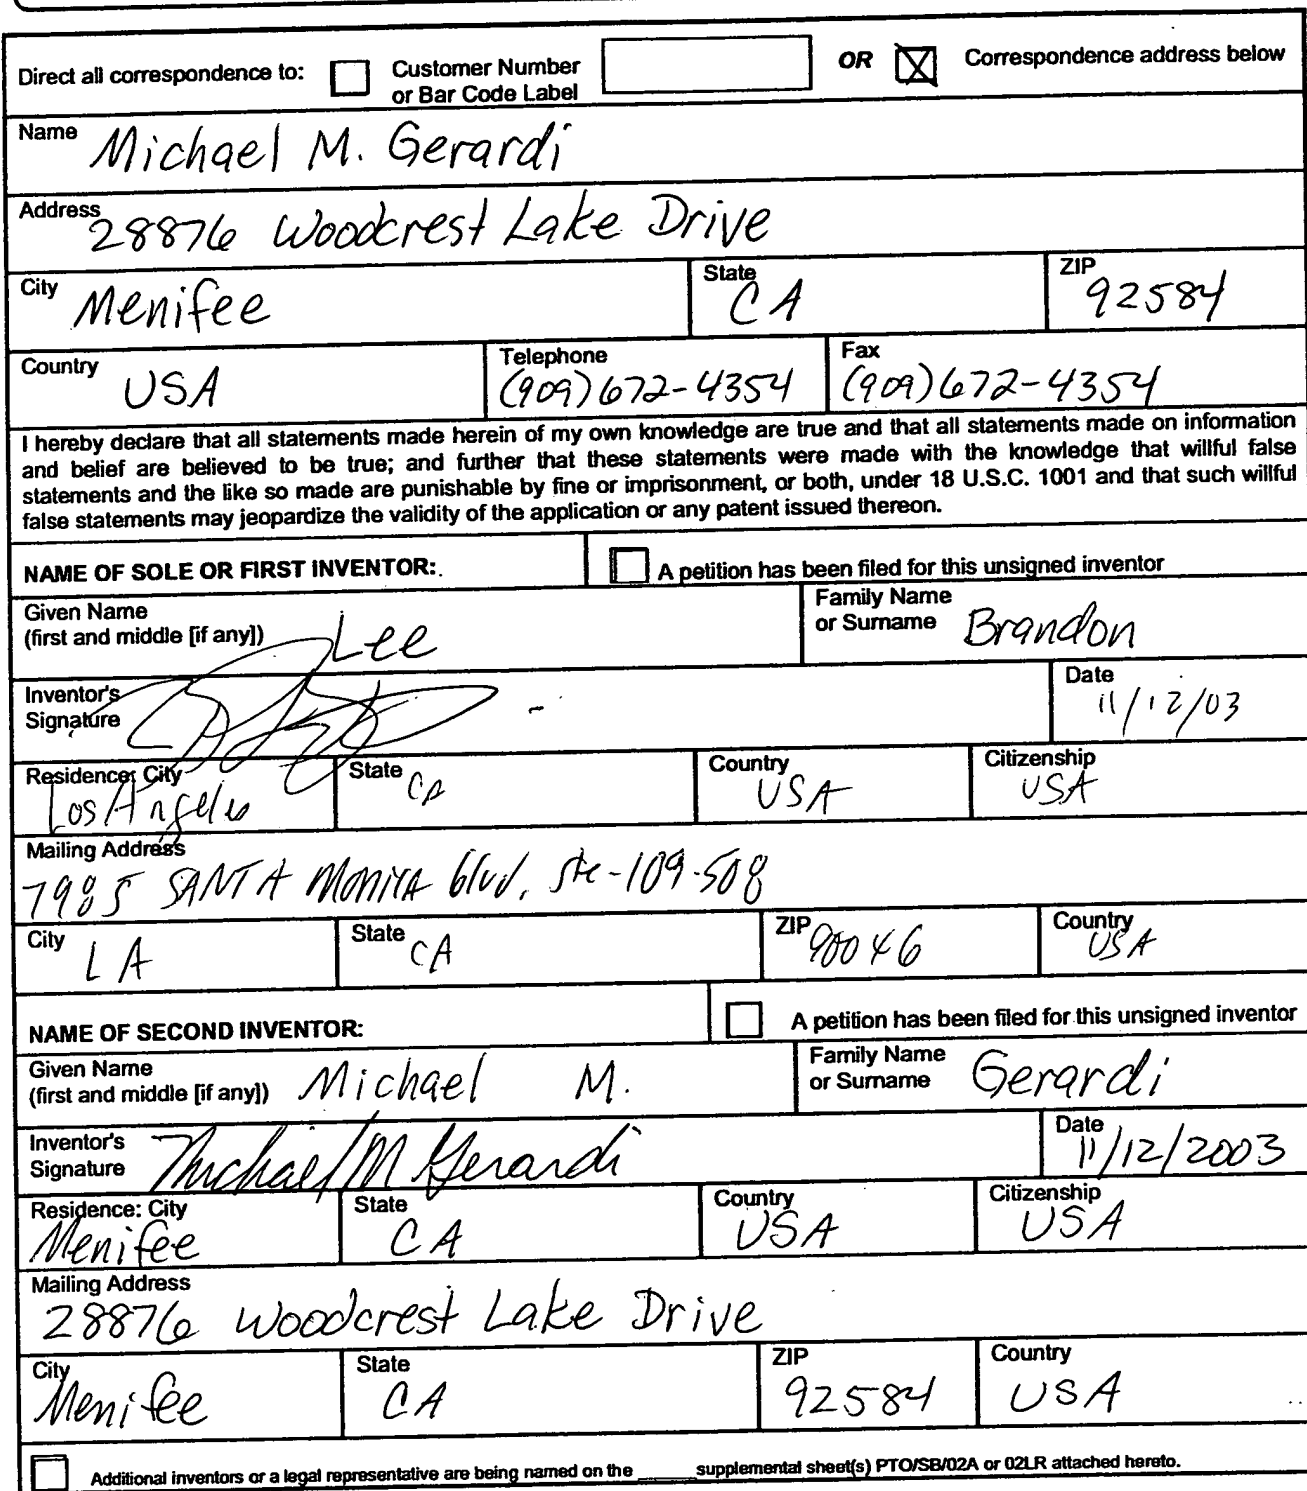 Direct all correspondence to: Customer Number or Bar Code Label OR Correspondence address below
Name Michael M. Gerardi
Address 28876 Woodcrest Lake Drive
City Menifee State CA ZIP 92584
Country USA Telephone (909)672-4354 Fax (909)672-4354
I hereby declare that all statements made herein of my own knowledge are true and that all statements made on information
and belief are believed to be true; and further that these statements were made with the knowledge that willful false
statements and the like so made are punishable by fine or imprisonment, or both, under 18 U.S.C. 1001 and that such willful
false statements may jeopardize the validity of the application or any patent issued thereon.
NAME OF SOLE OR FIRST INVENTOR: A petition has been filed for this unsigned inventor
Given Name
(first and middle [if any]) Lee
Family Name
or Surname Brandon
Inventor's
Signature
Date 11/12/03
Residence: City Los Angeles State CA Country USA Citizenship USA
Mailing Address
7985 SANTA MONICA blvd. Ste-109-508
City LA State CA ZIP 90046 Country USA
NAME OF SECOND INVENTOR: A petition has been filed for this unsigned inventor
Given Name
(first and middle [if any]) Michael M.
Family Name
or Surname Gerardi
Inventor's
Signature Michael M Gerardi
Date 11/12/2003
Residence: City Menifee State CA Country USA Citizenship USA
Mailing Address
28876 Woodcrest Lake Drive
City Menifee State CA ZIP 92584 Country USA
Additional inventors or a legal representative are being named on the _____supplemental sheet(s) PTO/SB/02A or 02LR attached hereto.